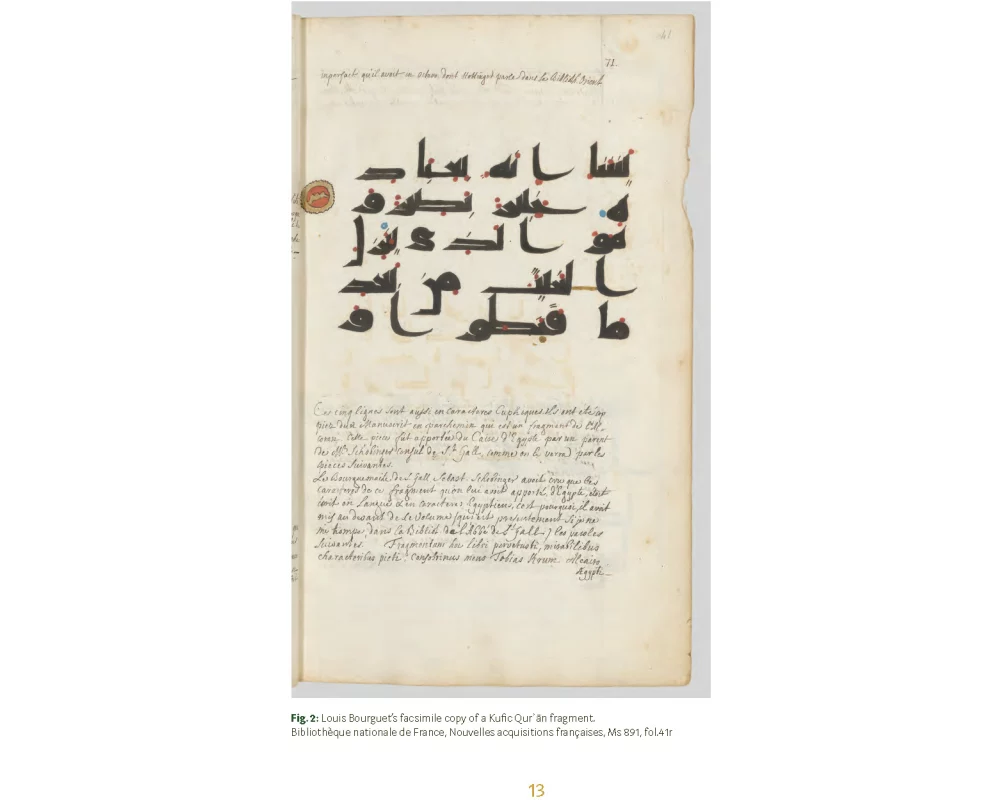 41
71.
qu'il avoit in octavo, dont Hottinger parle dans la Biblioth. Orient.
يشا انه بعباد
ه خبير بصير و
هو الذى ينزل
الغيث من بعد
ما قنطوا و
Ces cinq lignes sont aussi en caracteres Cuphiques. Ils ont été co
piez du 2 Manuscrit en parchemin qui est un fragment de l'Al-
coran. Cette piece fut apportée du Caire d'Egypte par un parent
de Mr. Schobinger Consul de St. Gall, comme on le verra par les
pieces suivantes.
Le Bourguemaitre de S. Gall Sebast. Schobinger avoit cru que les
caracteres de ce fragment qu'on lui avoit apporté d'Egypte, etoit
ecrit en Langue & en caracteres Egyptiens, c'est pourquoi, il avoit
mis au devant de ce Volume (qui est presentement si je ne
me trompe, dans la Biblioth. de l'Abbé de S. Gall) les paroles
suivantes. Fragmentum hoc libri pervetusti, mirabilibus
characteribus picti. Consobrinus meus Tobias
Fig. 2: Louis Bourguet's facsimile copy of a Kufic Qurʾān fragment.
Bibliothèque nationale de France, Nouvelles acquisitions françaises, Ms 891, fol.41r
13